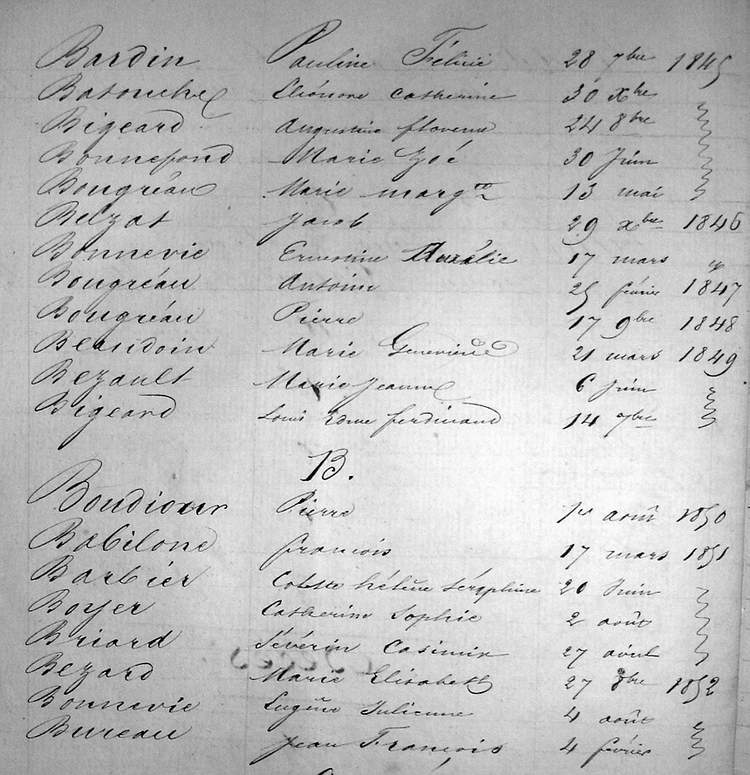 Bardin Pauline Félicie 28 7bre 1845
Batouche Eléonore Catherine 30 Xbre
Bigeard Augustine florence 24 8bre
Bonnefond Marie Zoé 30 Juin
Bougréau Marie margte 13 mai
Belzat Jacob 29 xbre 1846
Bonnevie Ernestine Aurélie 17 mars "
Bougréau Antoine 25 février 1847
Bougréau Pierre 17 9bre 1848
Beaudoin Marie Geneviève 21 mars 1849
Bezault Marie Jeanne 6 Juin
Bigeard Louis Edme ferdinand 14 7bre
B.
Boudioux Pierre 1er août 1850
Babilone françois 17 mars 1851
Barbier Colette hélène Séraphine 20 Juin
Boyer Catherine Sophie 2 août
Briard Séverin Casimir 27 avril
Bezard Marie Elisabeth 27 8bre 1852
Bonnevie Eugène Julienne 4 août
Bureau Jean François 4 février